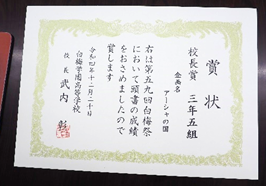 賞状
校長賞 三年五組
企画名
アーシャの国
右は第五九回白梅祭
において頭書の成績
をおさめましたので
賞します
令和四年十二月二十日
白梅学園高等学校
校長 武内 彰